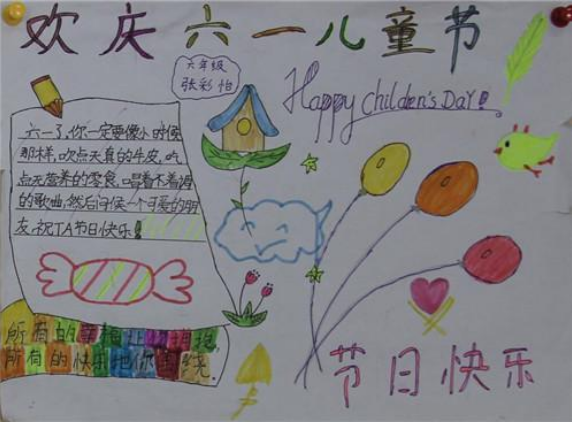 欢庆六一儿童节
六年级
张彩怡
Happy childen's DAY!
六一了,你一定要像小时候
那样,吹点天真的牛皮,吃
点无营养的零食,唱着不着调
的歌曲,然后问候一个可爱的朋
友,祝TA节日快乐!
所有的幸福让你拥抱,
所有的快乐把你围绕.
节日快乐